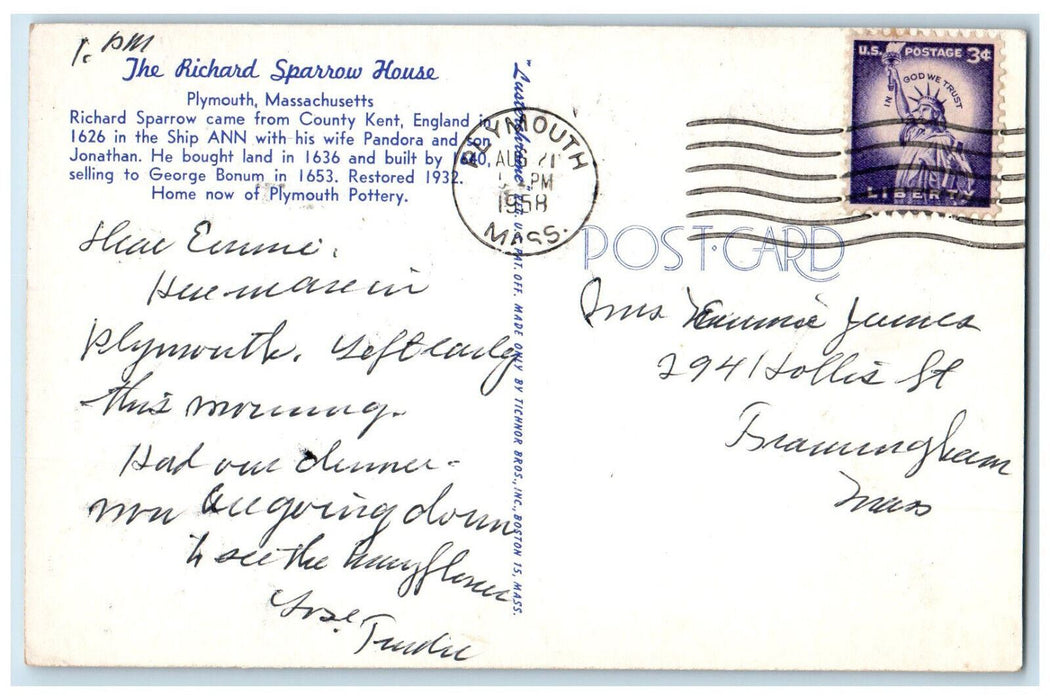 1. PM
The Richard Sparrow House
Plymouth, Massachusetts
Richard Sparrow came from County Kent, England in
1626 in the Ship ANN with his wife Pandora and son
Jonathan. He bought land in 1636 and built by 1640,
selling to George Bonum in 1653. Restored 1932.
Home now of Plymouth Pottery.
Dear Emmie,
Here we are in
Plymouth. Left early
this morning.
Had our dinner-
now are going down
to see the Mayflower
Love
Trudie
"Lusterchrome" REG. U.S. PAT. OFF. MADE ONLY BY TICHNOR BROS., INC., BOSTON 15, MASS.
PLYMOUTH
AUG 21
PM
1958
MASS.
U.S. POSTAGE 3¢
IN GOD WE TRUST
LIBERTY
POST CARD
Mrs Emmie James
294 Hollis St
Framingham
Mass